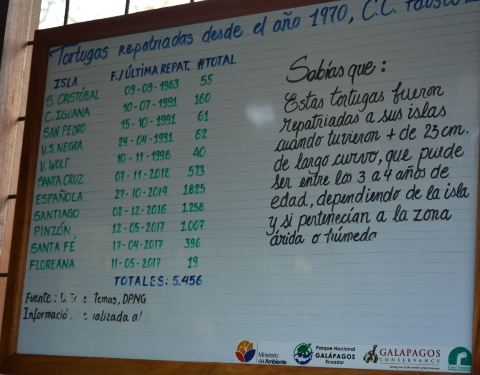 Tortugas repatriadas desde el año 1970, C.C.
ISLA F./ÚLTIMA REPAT. #TOTAL
S. CRISTÓBAL 09-09-1983 55
C. IGUANA 10-07-1991 160
SAN PEDRO 15-10-1991 61
V.S. NEGRA 24-04-1991 62
V. WOLF 10-11-1998 40
SANTA CRUZ 07-11-2012 573
ESPAÑOLA 27-10-2014 1825
SANTIAGO 08-12-2016 1.258
PINZÓN 12-05-2017 1.007
SANTA FÉ 17-04-2017 396
FLOREANA 11-05-2017 19
TOTALES: 5.456
Fuente: temas, DPNG
Sabías que:
Estas tortugas fueron
repatriadas a sus islas
cuando tuvieron + de 23 cm.
de largo curvo, que puede
ser entre los 3 a 4 años de
edad, dependiendo de la isla
y si pertenecían a la zona
árida o húmeda
Ministerio
del Ambiente
Parque Nacional
GALÁPAGOS
Ecuador
GALAPAGOS
CONSERVANCY